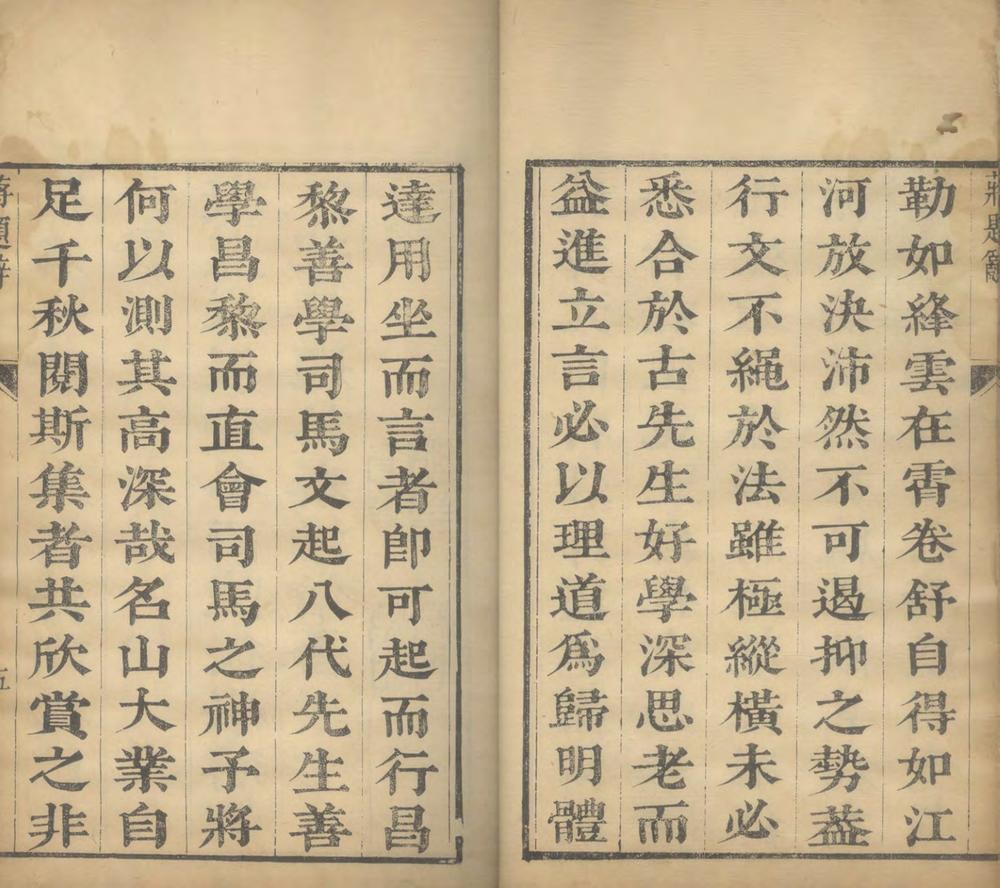 勒如絳雲在霄卷舒自得如江
河放決沛然不可遏抑之勢葢
行文不繩於法雖極縱橫未必
悉合於古先生好學深思老而
益進立言必以理道爲歸明體
達用坐而言者卽可起而行昌
黎善學司馬文起八代先生善
學昌黎而直會司馬之神予將
何以測其高深哉名山大業自
足千秋閱斯集者共欣賞之非
五